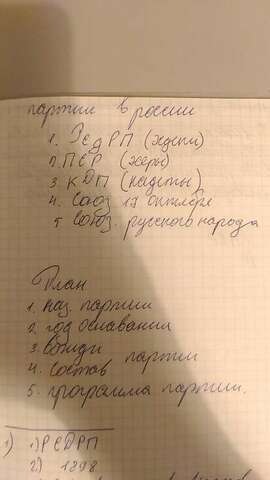 партии в россии
1. РСДРП (эсдеки)
2. ПСР (эсеры)
3. КДП (кадеты)
4. Союз 17 октября
5 Союз. русского народа
План
1. наз. партии
2. год основания
3. вожди
4. состав партии
5. программа партии.
1) 1) РСДРП
2) 1898